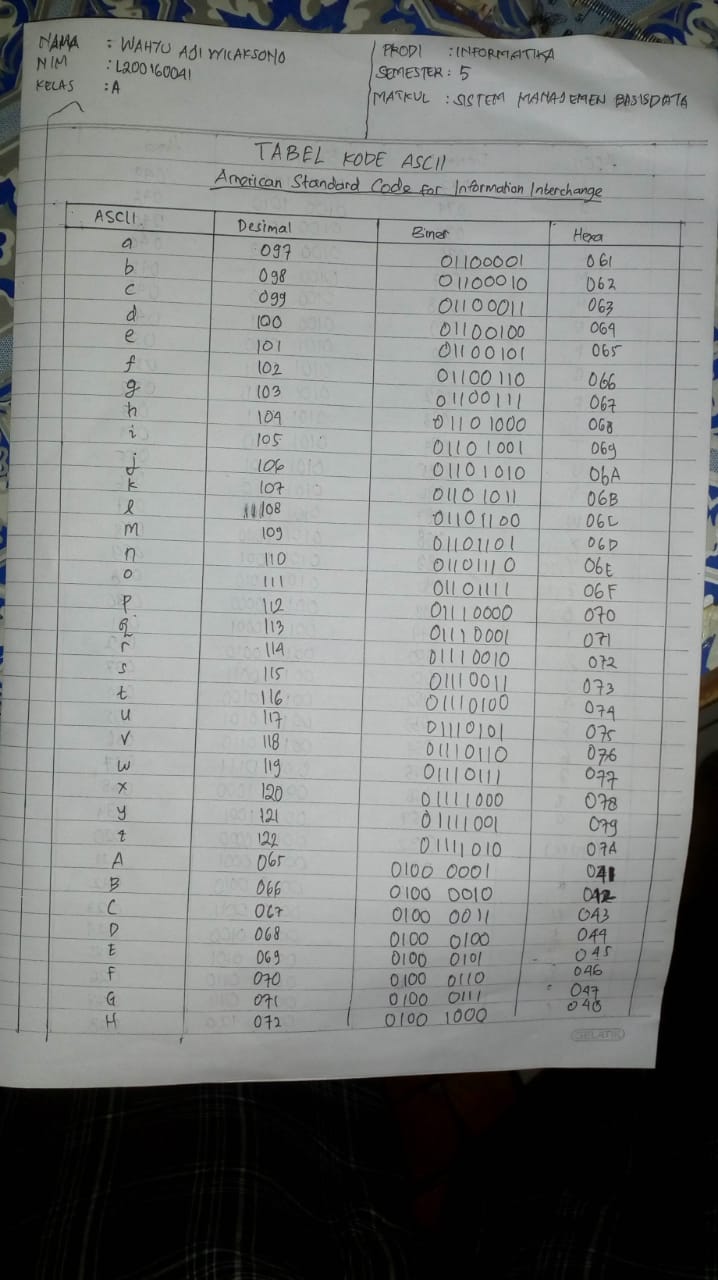 NAMA : WAHYU AJI WICAKSONO
NIM : L200160041
KELAS : A
PRODI : INFORMATIKA
SEMESTER : 5
MATKUL : SISTEM MANAJEMEN BASISDATA
TABEL KODE ASCII
American Standard Code for Information Interchange
ASCII Desimal Biner Hexa
a 097 01100001 061
b 098 01100010 062
c 099 01100011 063
d 100 01100100 064
e 101 01100101 065
f 102 01100110 066
g 103 01100111 067
h 104 01101000 068
i 105 01101001 069
j 106 01101010 06A
k 107 01101011 06B
l 108 01101100 06C
m 109 01101101 06D
n 110 01101110 06E
o 111 01101111 06F
p 112 01110000 070
q 113 01110001 071
r 114 01110010 072
s 115 01110011 073
t 116 01110100 074
u 117 01110101 075
v 118 01110110 076
w 119 01110111 077
x 120 01111000 078
y 121 01111001 079
z 122 01111010 07A
A 065 0100 0001 041
B 066 0100 0010 042
C 067 0100 0011 043
D 068 0100 0100 044
E 069 0100 0101 045
F 070 0100 0110 046
G 071 0100 0111 047
H 072 0100 1000 048
GELATIK